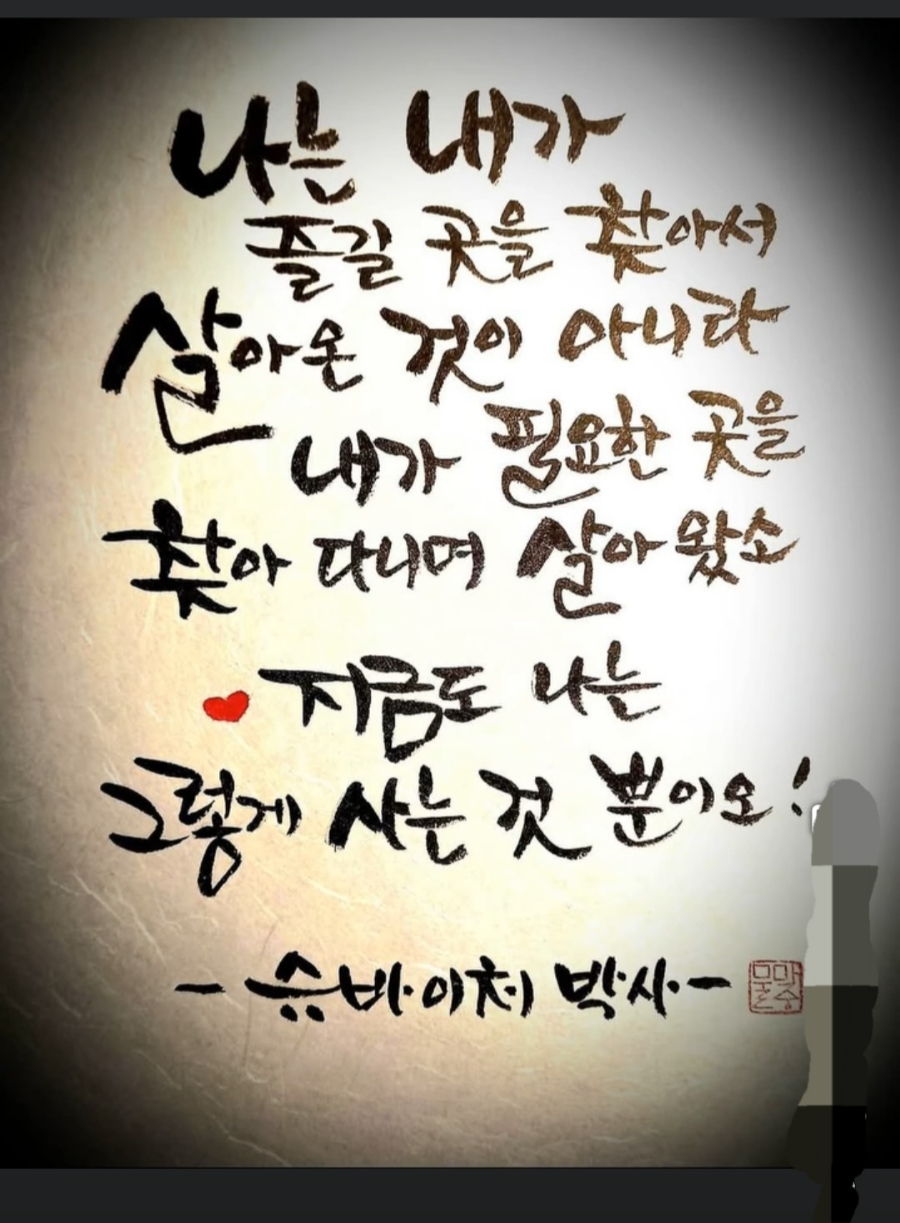 나는 내가
즐길 곳을 찾아서
살아온 것이 아니라
내가 필요한 곳을
찾아 다니며 살아왔소
지금도 나는
그렇게 사는 것 뿐이오!
- 슈바이처 박사 -